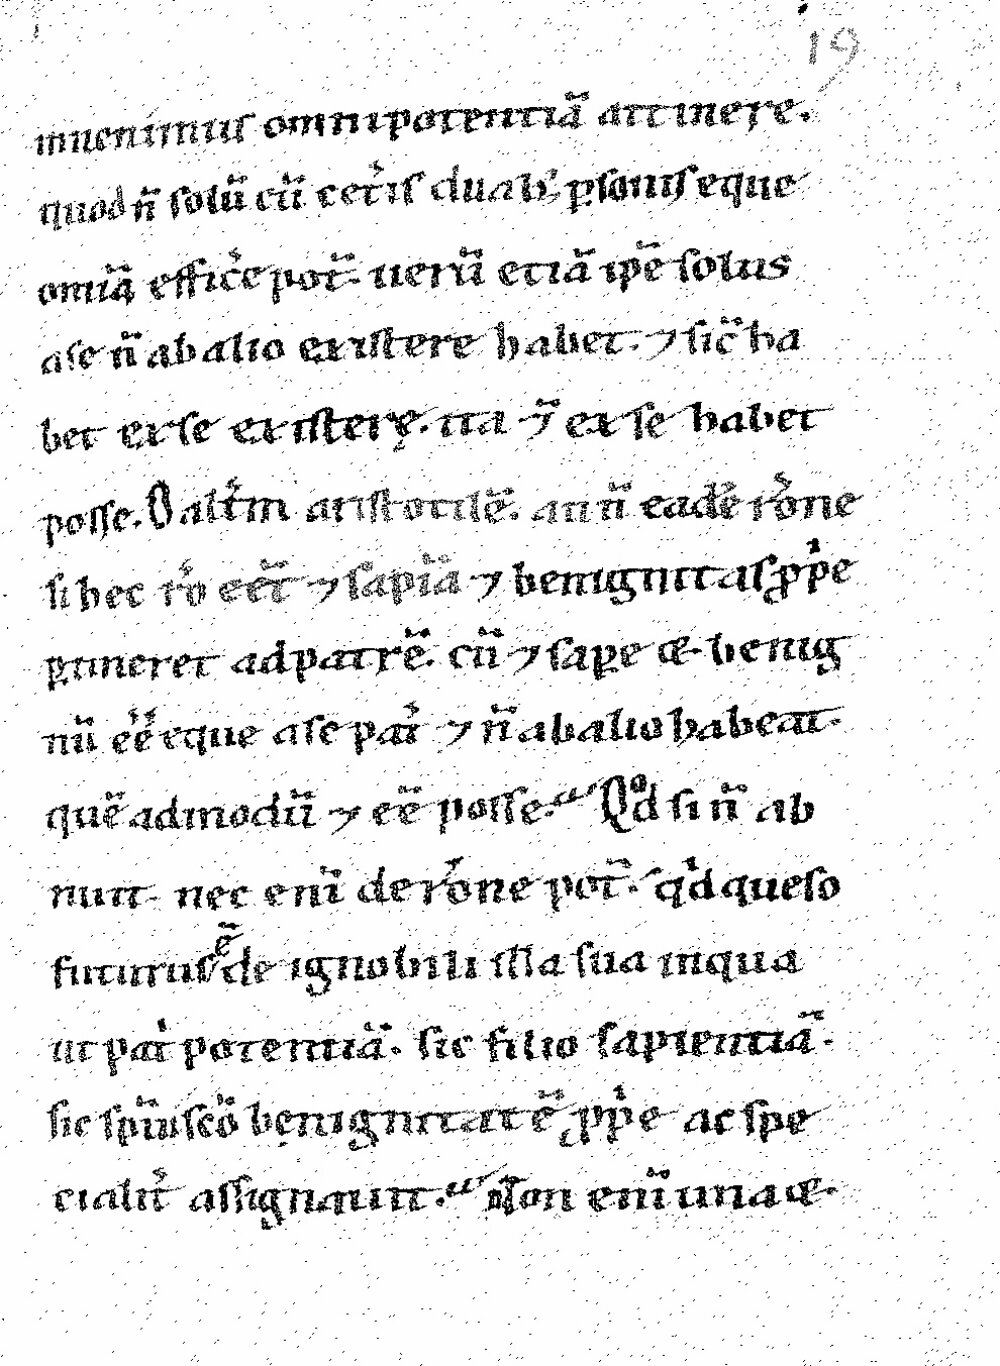 19
inuenimus omnipotentiā attinere.
quod n̄ solū cū cet̓is duab; ꝑsonis eque
omīa effic̓e pot̄. uerū etiā ip̄e solus
a se n̄ ab alio existere habet. ⁊ sic̄ ha
bet ex se existere. ita ⁊̄ ex se habet
posse. alt̓m aristotilē. an n̄ eadē r̓one
si hec r̓o eēt ⁊ sapīa ⁊ benignitas ꝓp̓e
ꝑtineret ad patrē. cū ⁊ saꝑe ⁊ benig
nū eē̄ eque a se pat̓ ⁊ n̄ ab alio habeat.
quē admodū ⁊ eē posse. Qd̓ si n̄ ab
nuit. nec enī de r̓one pot̄. qͥd queso
futurus ē de ignobili illa sua inqua
ut pat̓ potentiā. sic filio sapientiā.
sic sp̄ui sc̄o benignitatē ꝓp̓e ac spe
cialit̓ assignauit. Non enī una